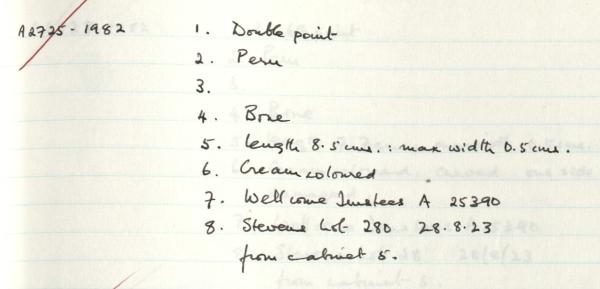 A2725-1982 1. Double point
2. Peru
3.
4. Bone
5. Length 8.5 cms. : max width 0.5 cms.
6. Cream coloured
7. Wellcome Trustees A 25390
8. Stevens Lot 280 28.8.23
from cabinet 5.